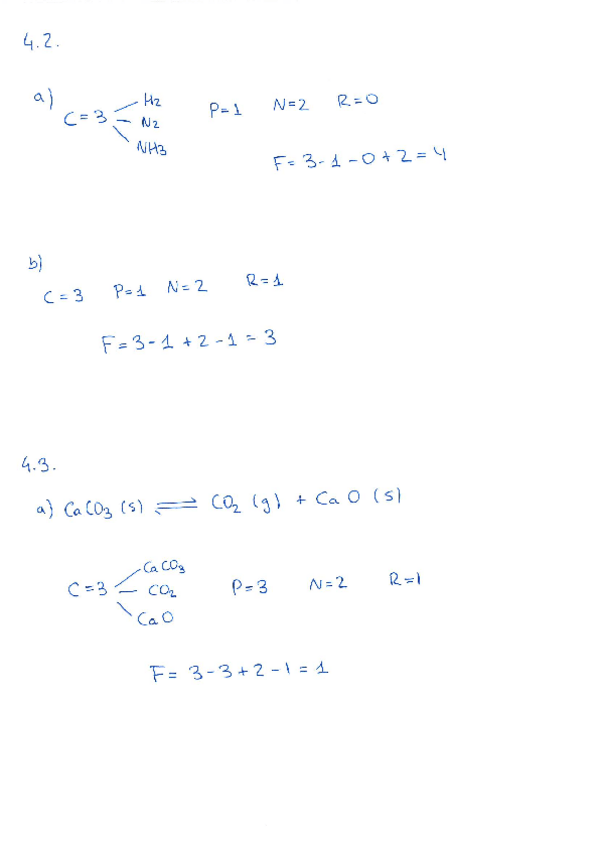 4.2.
a) C=3 H2 P=1 N=2 R=0
N2
NH3
F= 3-1-0+2=4
b)
C=3 P=1 N=2 R=1
F=3-1+2-1=3
4.3.
a) CaCO3 (s) ⇌ CO2 (g) + CaO (s)
CaCO3
C=3 CO2 P=3 N=2 R=1
CaO
F= 3-3+2-1=1